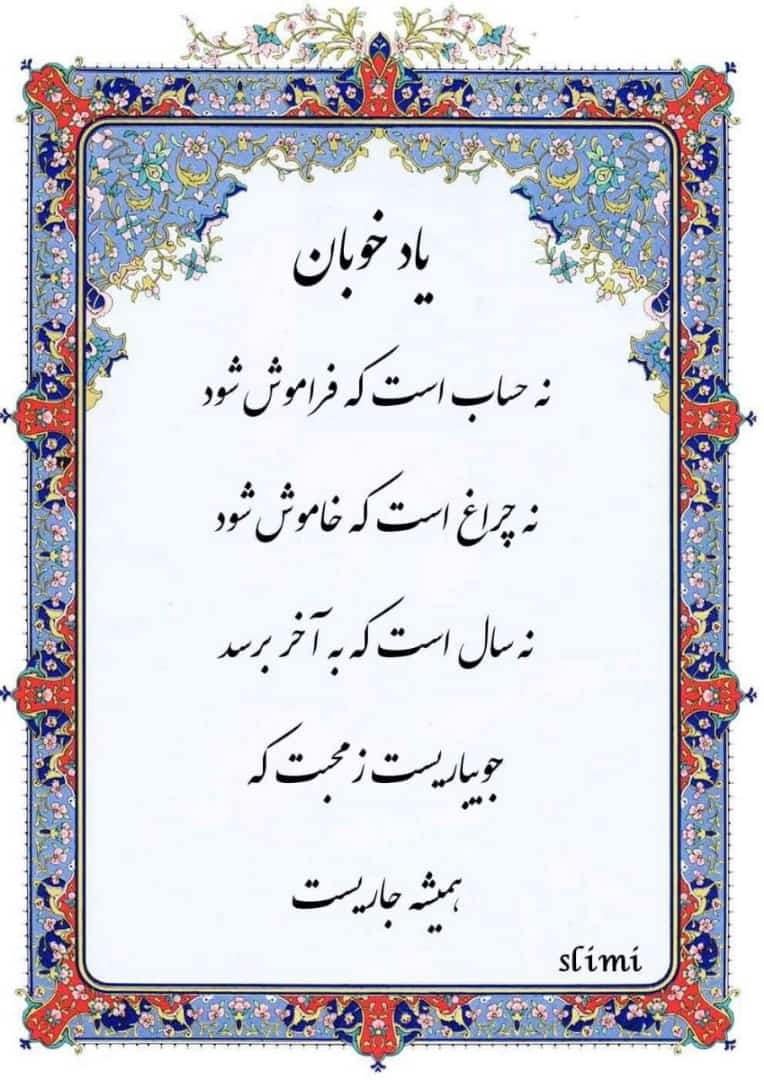 یاد خوبان
نه حساب است که فراموش شود
نه چراغ است که خاموش شود
نه سال است که به آخر برسد
جویباریست ز محبت که
همیشه جاریست
slimi